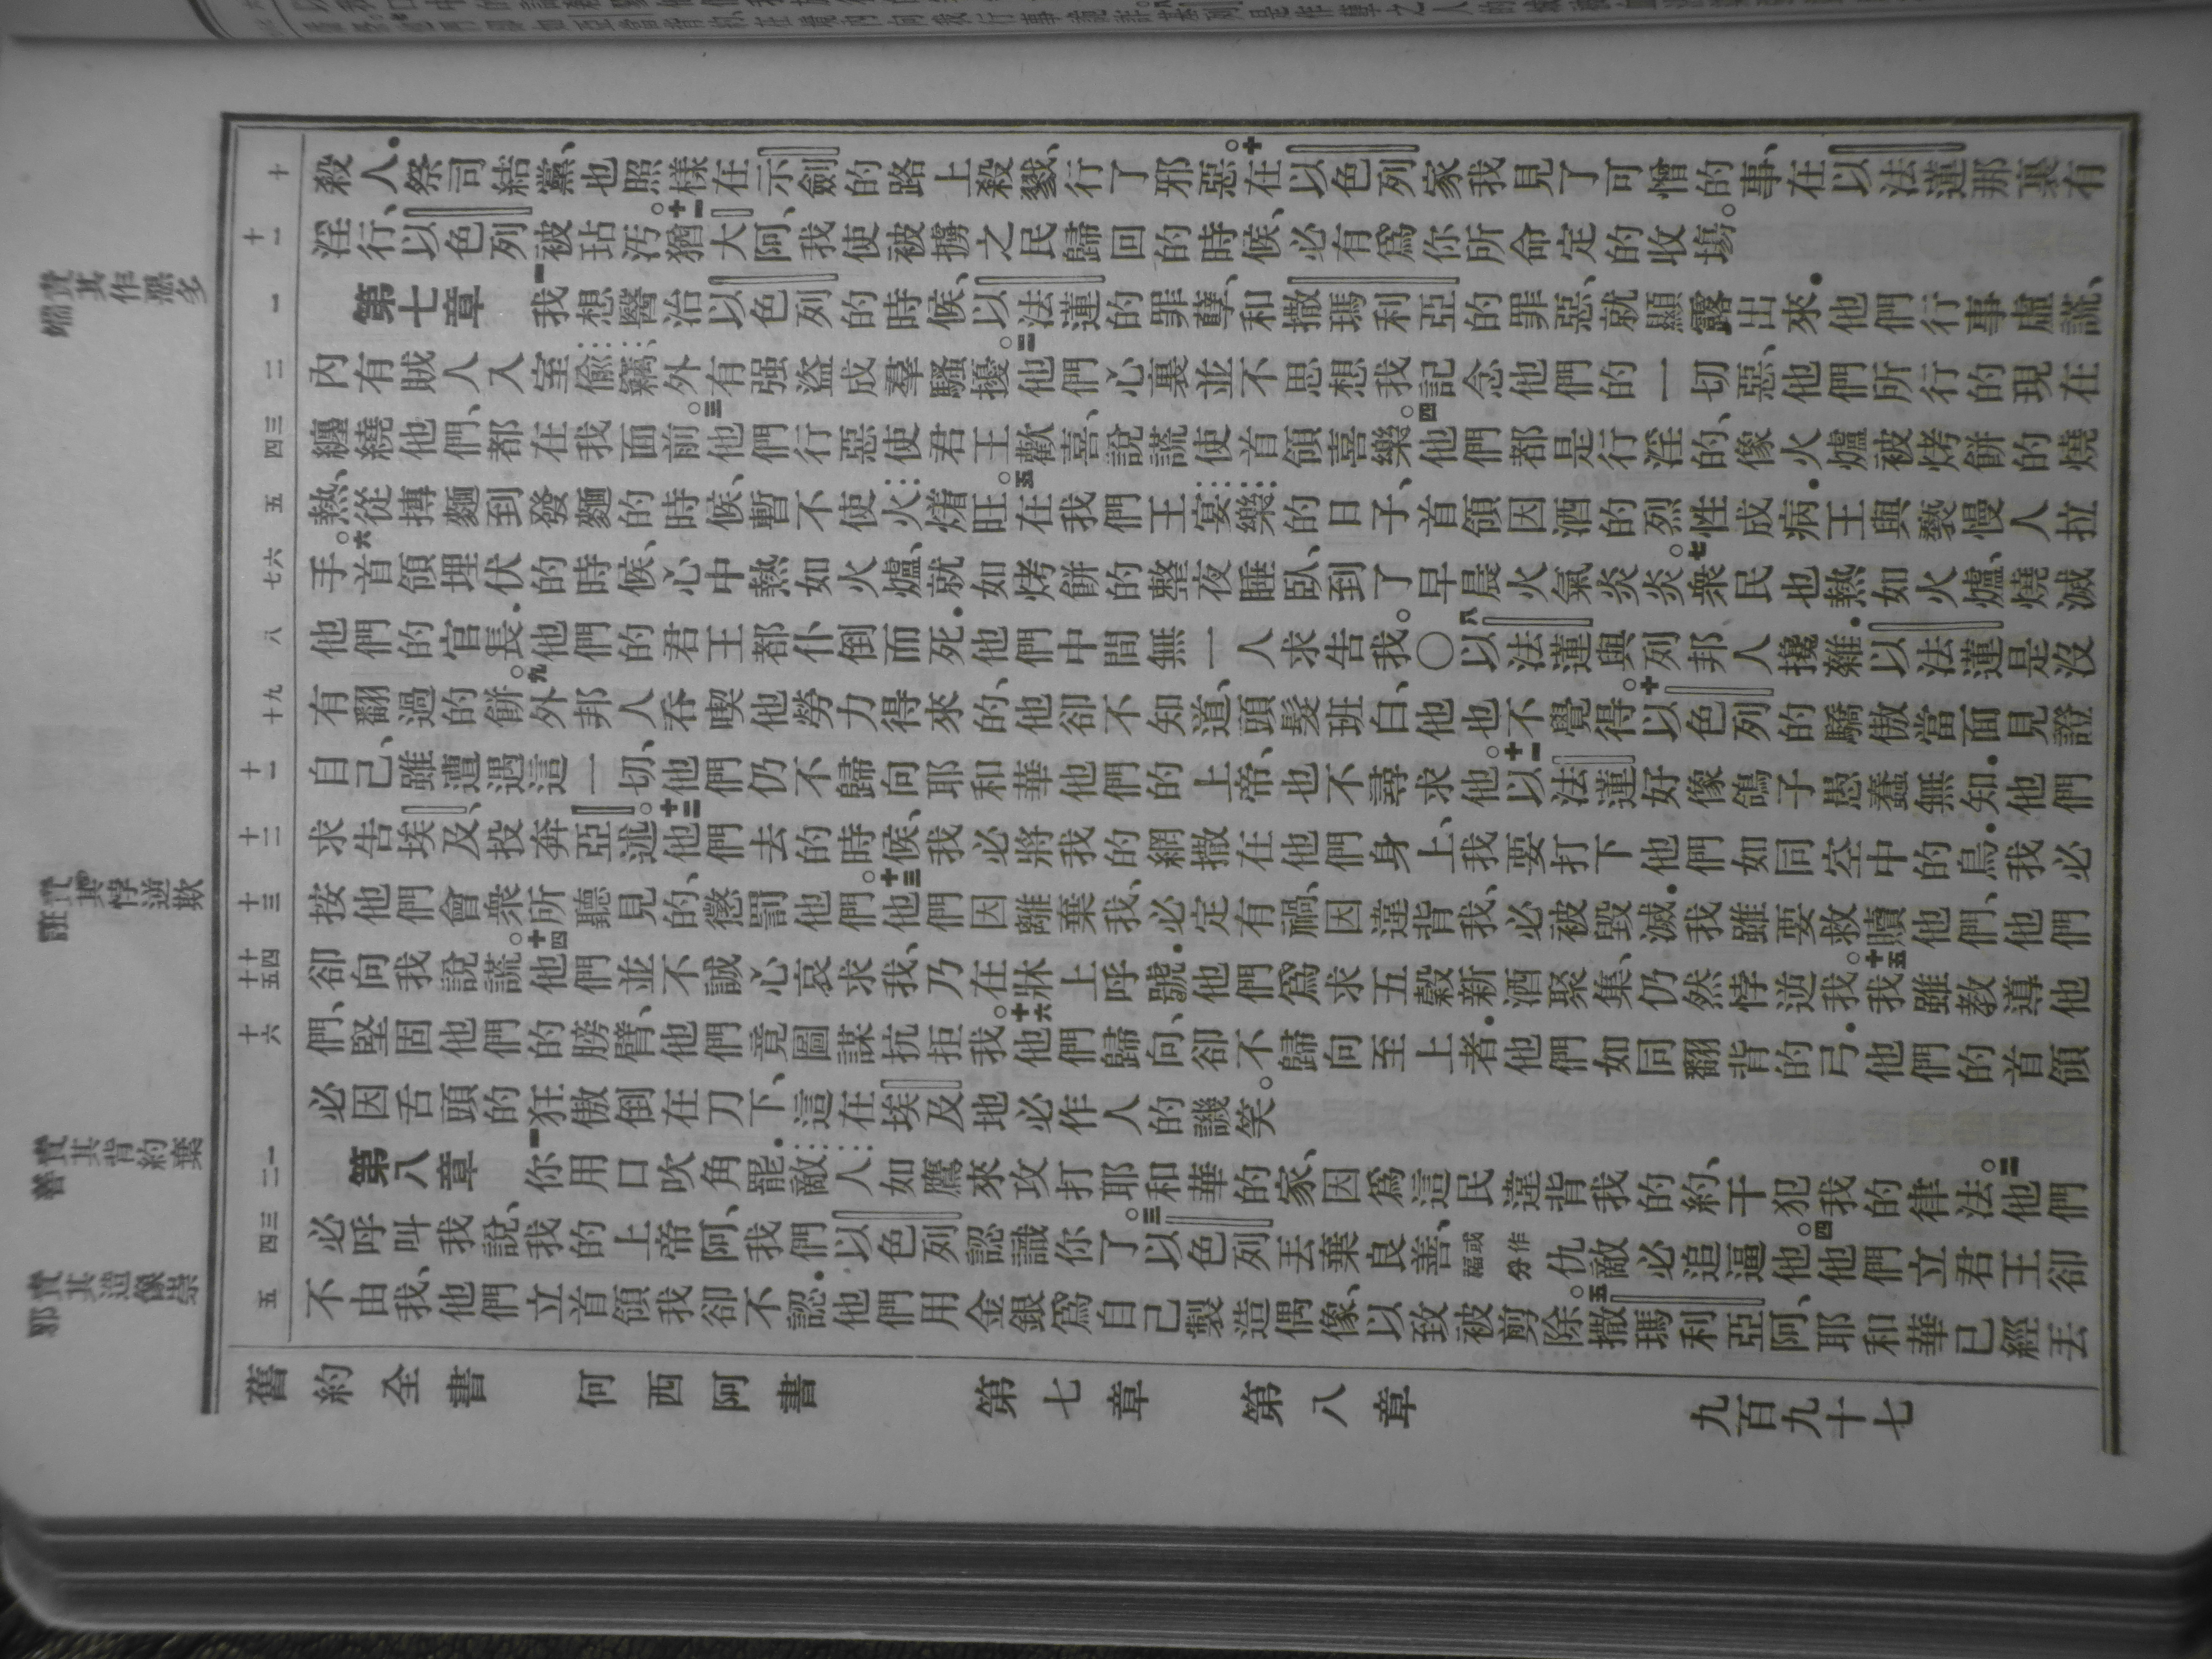 殺人．祭司結黨、也照樣在示劍的路上殺戮、行了邪惡。十在以色列家我見了可憎的事、在以法蓮那裏有
淫行、以色列被玷汚。十一猶大阿、我使被擄之民歸回的時候、必有爲你所命定的收塲。
第七章 一我想醫治以色列的時候、以法蓮的罪孽、和撒瑪利亞的罪惡、就顯露出來．他們行事虛謊、
內有賊人入室偷竊、外有强盜成羣騷擾。二他們心裏並不思想我記念他們的一切惡、他們所行的現在
纏繞他們、都在我面前。三他們行惡使君王歡喜、說謊使首領喜樂。四他們都是行淫的、像火爐被烤餅的燒
熱、從摶麵到發麵的時候、暫不使火𤏲旺。五在我們王宴樂的日子、首領因酒的烈性成病．王與褻慢人拉
手。六首領埋伏的時候、心中熱如火爐、就如烤餅的整夜睡臥、到了早晨火氣炎炎。七衆民也熱如火爐、燒滅
他們的官長．他們的君王都仆倒而死．他們中間無一人求告我。〇八以法蓮與列邦人攙雜．以法蓮是沒
有翻過的餅。九外邦人吞喫他勞力得來的、他卻不知道、頭髮班白、他也不覺得。十以色列的驕傲當面見證
自己、雖遭遇這一切、他們仍不歸向耶和華他們的上帝、也不尋求他。十一以法蓮好像鴿子愚蠢無知．他們
求告埃及、投奔亞述。十二他們去的時候、我必將我的網撒在他們身上、我要打下他們如同空中的鳥．我必
按他們會衆所聽見的、懲罰他們。十三他們因離棄我、必定有禍、因違背我、必被毀滅．我雖要救贖他們、他們
卻向我說謊。十四他們並不誠心哀求我、乃在牀上呼號．他們爲求五穀新酒聚集、仍然悖逆我。十五我雖教導他
們、堅固他們的膀臂、他們竟圖謀抗拒我。十六他們歸向、卻不歸向至上者．他們如同翻背的弓．他們的首領
必因舌頭的狂傲倒在刀下、這在埃及地必作人的譏笑。
第八章 一你用口吹角罷．敵人如鷹來攻打耶和華的家、因爲這民違背我的約、干犯我的律法。二他們
必呼叫我說、我的上帝阿、我們以色列認識你了。三以色列丟棄良善、或作福分仇敵必追逼他。四他們立君王卻
不由我、他們立首領我卻不認．他們用金銀爲自己製造偶像、以致被剪除。五撒瑪利亞阿、耶和華已經丟
十
十一
一
二
三 四
五
六 七
八
九 十
十一
十二
十三
十四 十五
十六
一 二
三 四
五
責其作惡多
端
責其悖逆欺
誑
責其背約棄
善
責其造像崇
邪
舊約全書 何西阿書 第七章 第八章 九百九十七